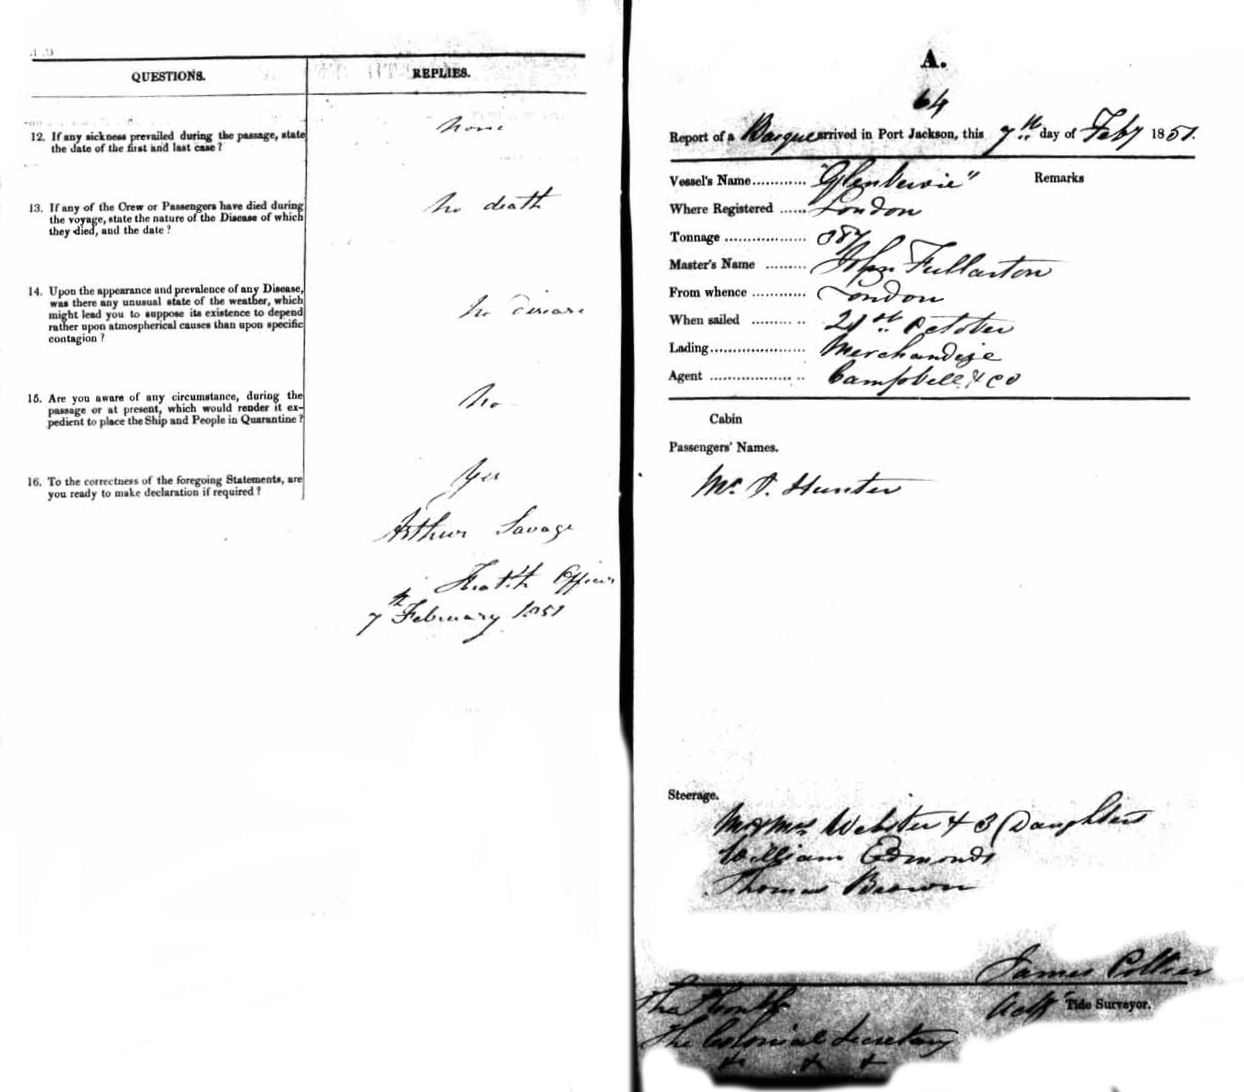 QUESTIONS.
REPLIES.
12. If any sickness prevailed during the passage, state
the date of the first and last case ?
none
13. If any of the Crew or Passengers have died during
the voyage, state the nature of the Disease of which
they died, and the date ?
no death
14. Upon the appearance and prevalence of any Disease,
was there any unusual state of the weather, which
might lead you to suppose its existence to depend
rather upon atmospherical causes than upon specific
contagion ?
no disease
15. Are you aware of any circumstance, during the
passage or at present, which would render it ex-
pedient to place the Ship and People in Quarantine ?
No
16. To the correctness of the foregoing Statements, are
you ready to make declaration if required ?
Yes
Arthur Savage
Health Officer
7th February 1851
A.
64
Report of a Barque arrived in Port Jackson, this 7th day of Feby 1851.
Vessel's Name............ "Glenbervie"
Remarks
Where Registered ...... London
Tonnage .................. 387
Master's Name ......... John Fullarton
From whence ............ London
When sailed ......... .. 21st October
Lading..................... Merchandize
Agent .................. .. Campbell & Co
Cabin
Passengers' Names.
Mr Hunter
Steerage.
Mr & Mrs Webster & 3 Daughters
William Edmonds
Thomas Brown
James
Tide Surveyor.
The Honble
The Colonial Secretary